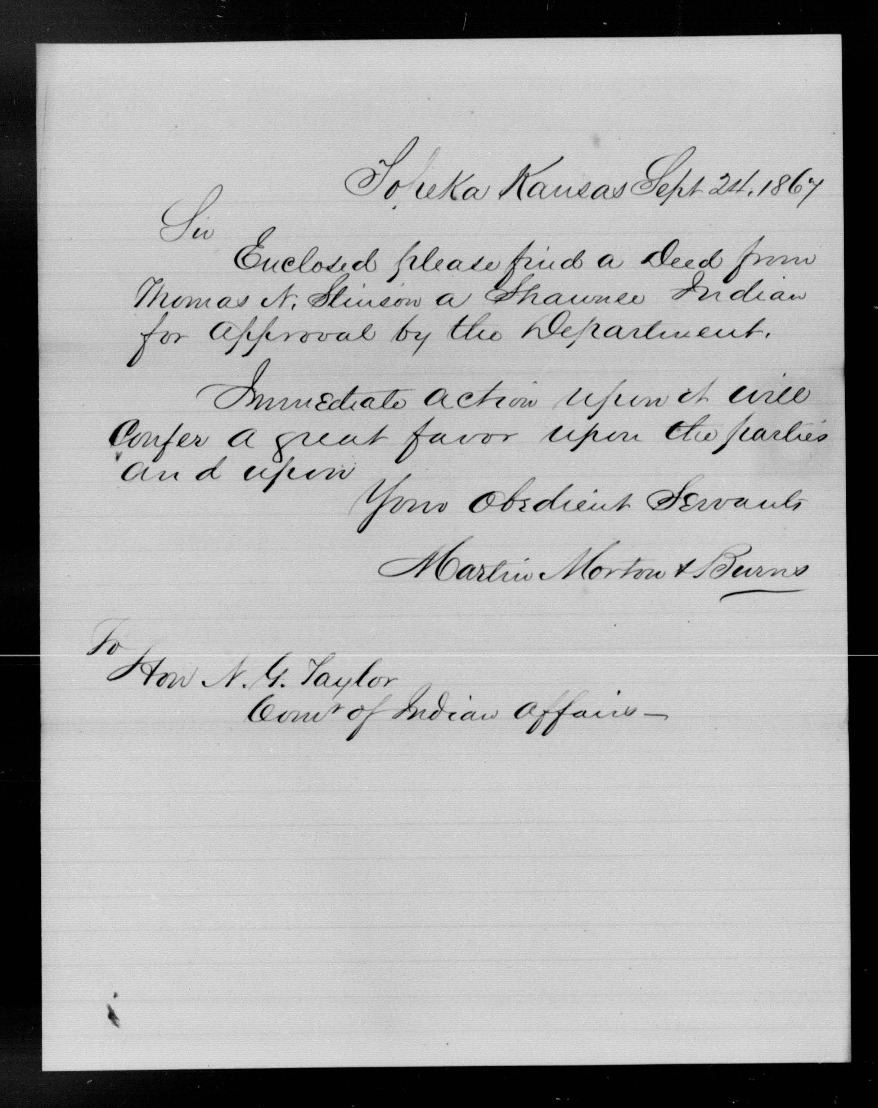 Topeka Kansas Sept 24, 1867
Sir
Enclosed please find a Deed from
Thomas N. Stinson a Shawnee Indian
for approval by the Department.
Immediate action upon it will
Confer a great favor upon the parties
and upon
Your Obedient Servants
Martin Morton & Burns
To
Hon N. G. Taylor
Comr of Indian Affairs—